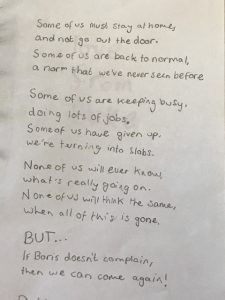 Some of us must stay at home,
and not go out the door.
Some of us are back to normal,
a norm that we've never seen before
Some of us are keeping busy,
doing lots of jobs.
Some of us have given up,
we're turning into slobs.
None of us will ever know,
what's really going on.
None of us will think the same,
when all of this is gone.
BUT...
If Boris doesn't complain,
then we can come again!